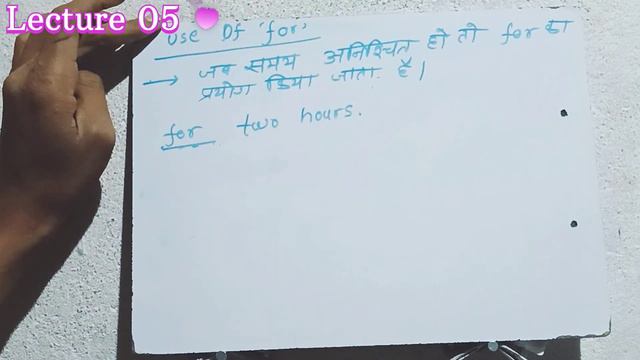 Lecture 05
Use Of 'for'
→ जब समय अनिश्चित हो तो for का
प्रयोग किया जाता है।
for two hours.